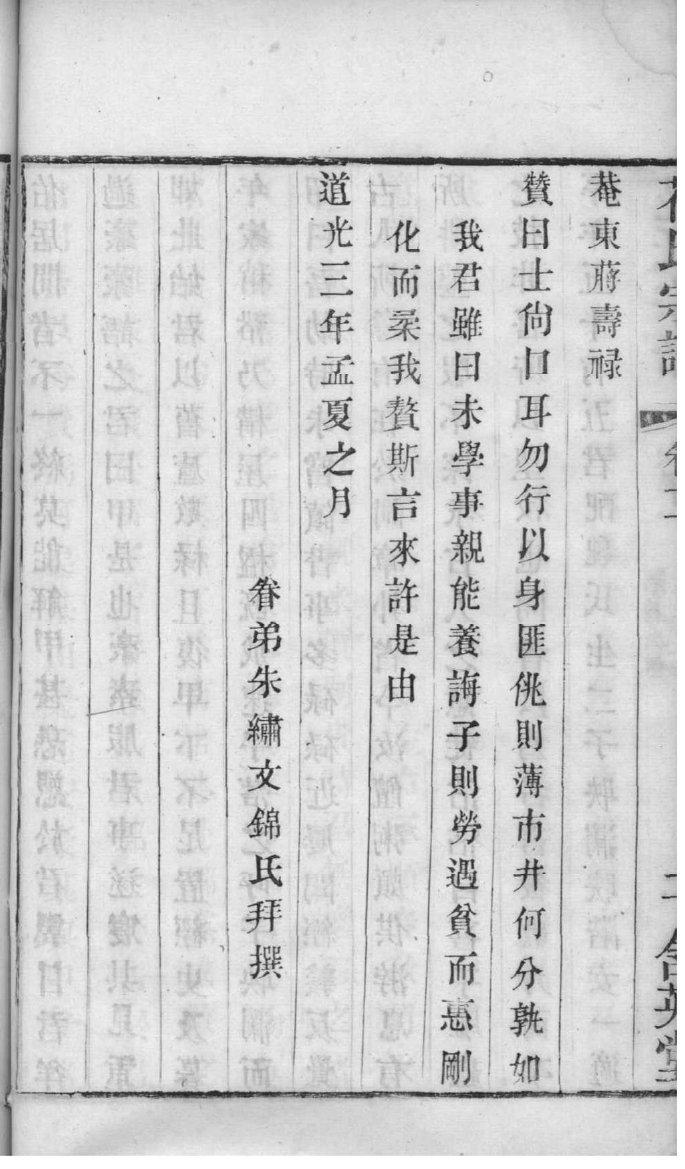 菴東蔣壽祿
贊曰士尙口耳勿行以身匪佻則薄市井何分孰如
我君雖曰未學事親能養誨子則勞遇貧而惠剛
化而柔我贅斯言來許是由
道光三年孟夏之月
眷弟朱繡文錦氏拜撰
氏宗譜
含英堂